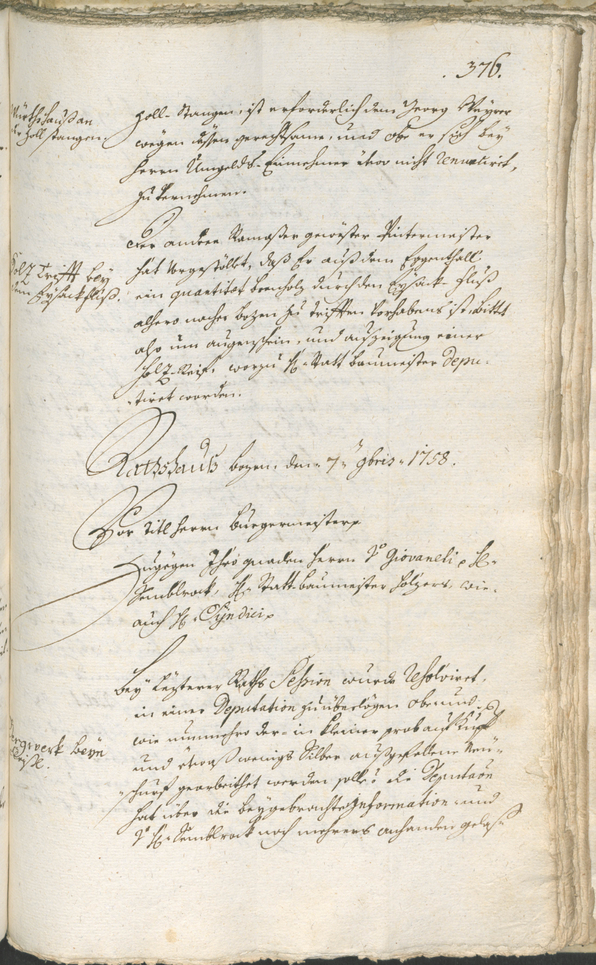 376.
Würthshauß an
der Zoll stangen
Zoll-Stangen, ist erforderlich den Georg Mayrer
wegen dessen gerechtsame, und obe er sich bey
Herrn Umgelds-Einnehmer über nicht
zu vernehmen.
Holz Trifft bey
dem Eysackfluß.
Der andere Ramoser gewester Hintermeister
hat vorgestöllet, daß Er auß dem Eggenthall
ein quantitæt brenholz durch den Eysack-Fluß
alhero nacher bozen zu triften vorhabens ist, bittet
also um augenschein, und auszeigung einer
Holz-Reiß, worzu H: Statt baumeister depu-
tiret worden.
Rathshauß bozen den 7t 9bris 1758.
Vor Titl Herrn burgermeister
zugegen Ihro gnaden Herrn v: Giovaneli, H:
Semblrock, H: Statt-baumeister Holzer, wie
auch H: Syndici
Bergwerk beym
bey lezterer Raths Session wurde resolviret,
in einer Deputation zu überlegen ob und
wie nunmehro der in kleiner prob auf Kupf
und etwaß wenigs Silber außgefallene
schurf gearbeithet werden solle? die Deputaon
hat über die beygebrachte Information und
v: H: Semblrock noch mehrers anhanden